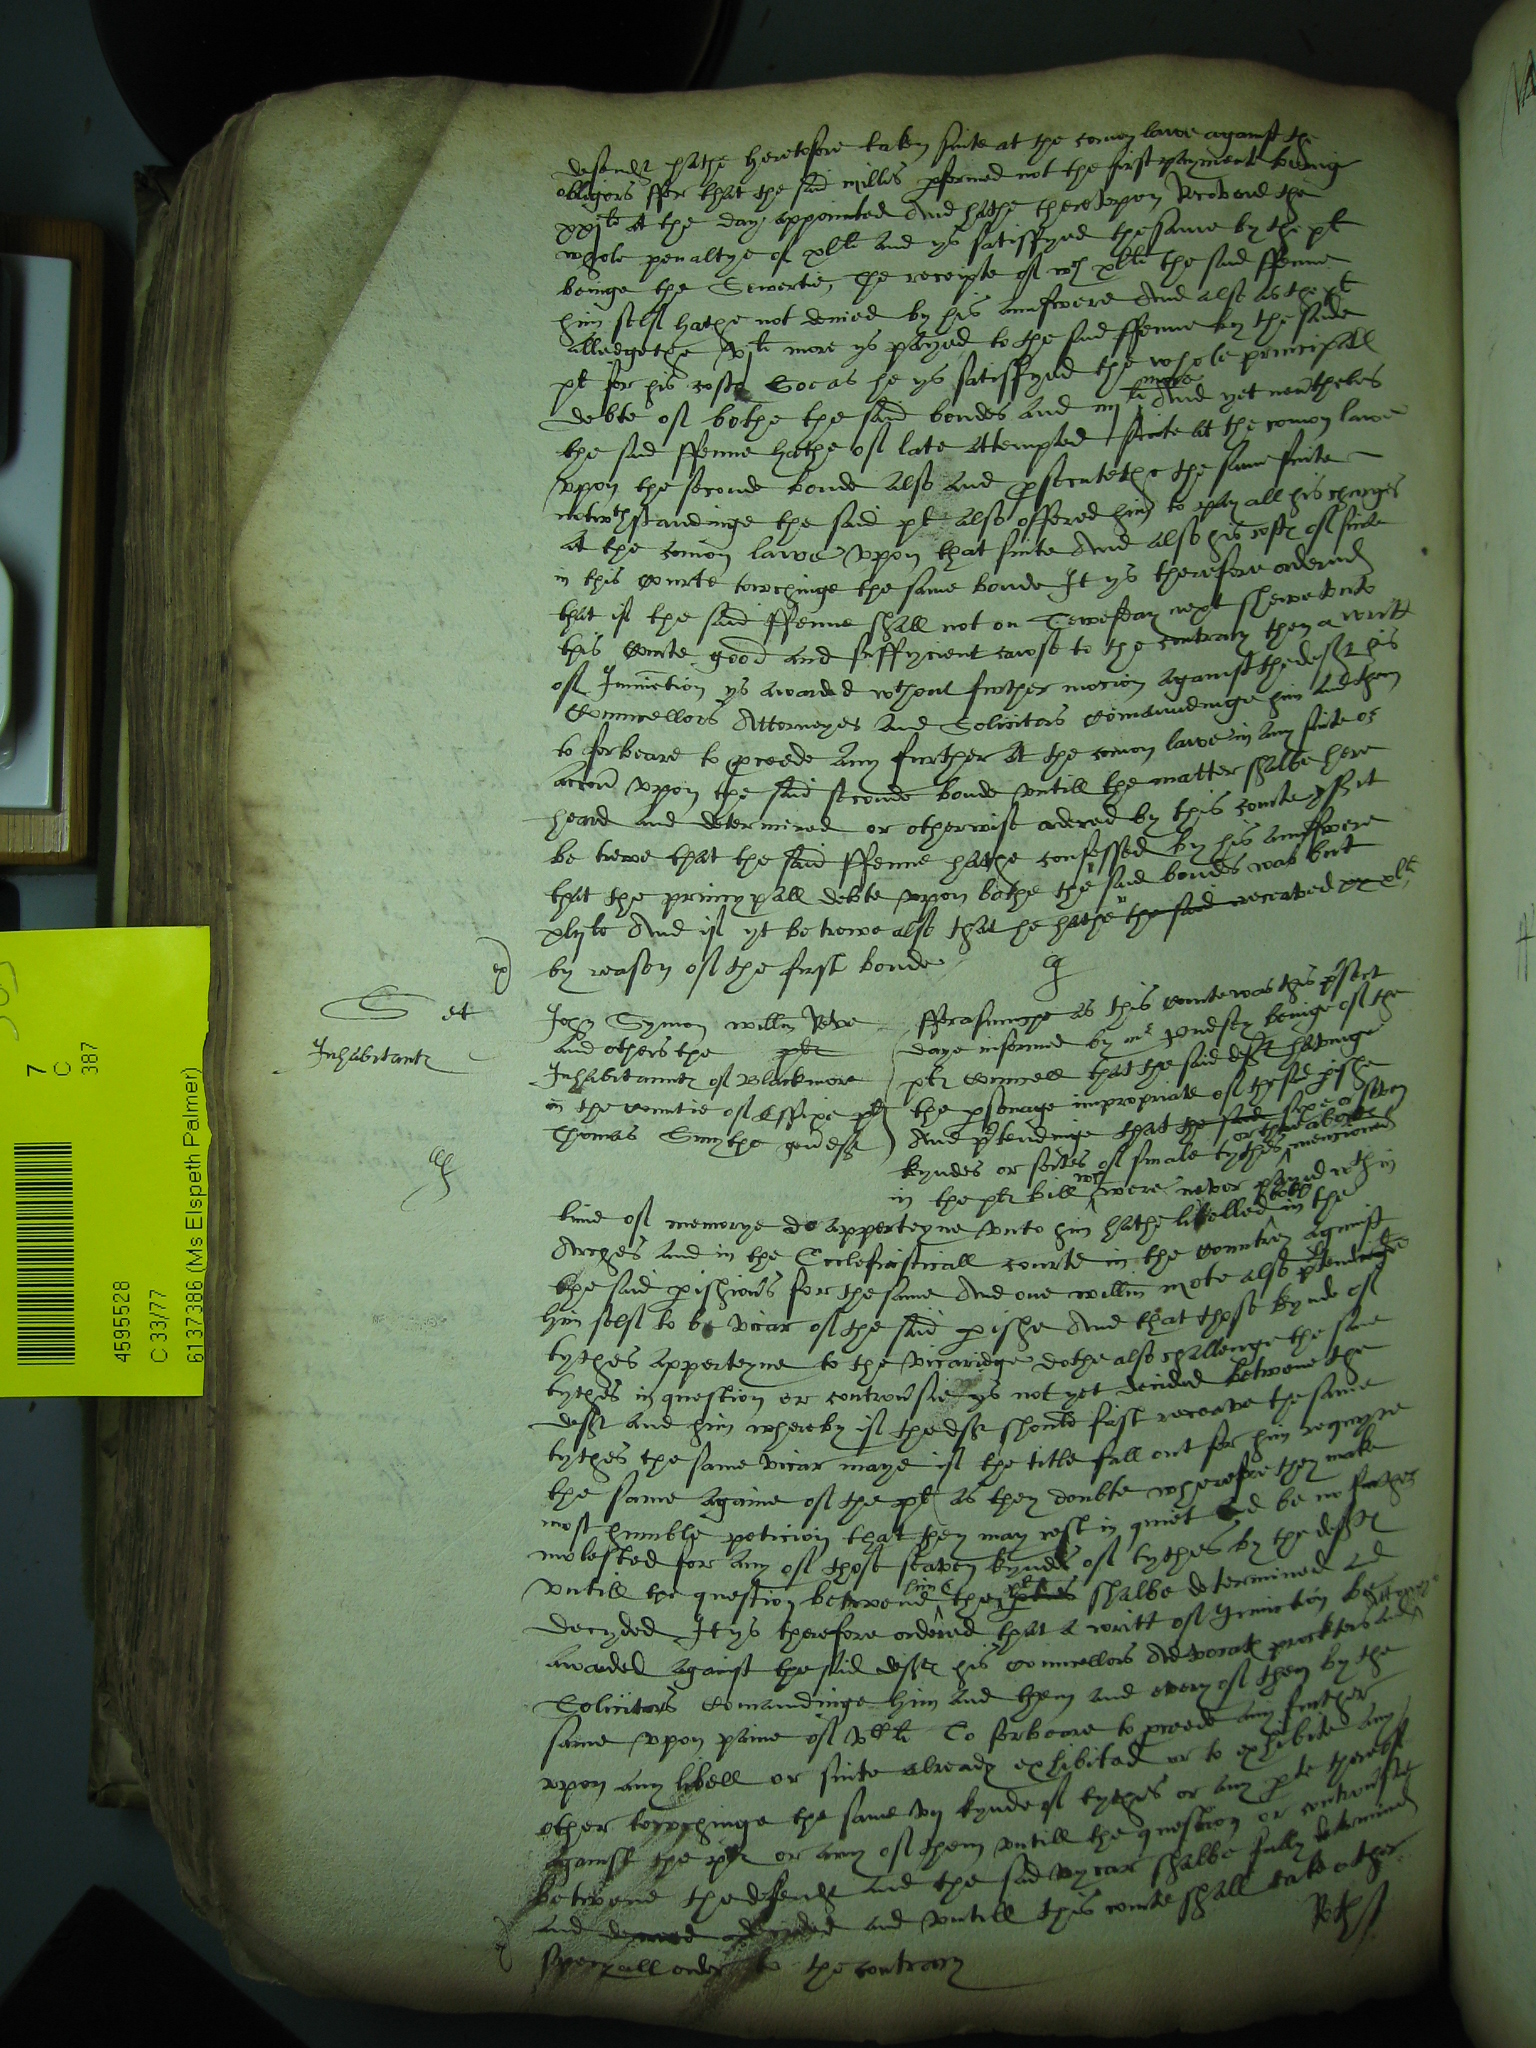 defendt hathe heretofore taken suite at the comon lawe against the
obligors ffor that the said millis pformed not the first payment beeing
xxjli at the day appointed And hathe thereupon Recovered the
whole penaltye of xlli and ys satisfyed the same by the plt
beinge the Sewertie, The receipte of wch xlli the said ffenne
him self hathe not denied by his aunswere And also as the plt
alledgethe more ys payed to the said ffenne by the saide
plt for his costs Soe as he ys satisfyed the whole principall
debte of bothe the said bondes and more And yet nevertheles
the said ffenne hathe of late attempted suite at the comon lawe
vpon the seconde bonde also and psecutethe the same suite
notwthstandinge the said plt also offered him to pay all his charges
at the comon lawe vpon that suite And also his costs of suite
in this courte towchinge the same bonde It ys therefore ordered
that if the said ffenne shall not on Tewesday next shewe vnto
this courte good and suffycient cawse to the contrary then a writt
of Iniunction ys awarded wthout further mocion against the deft his
Councellors Attorneyes and Solicitors comaundinge him and them
to forbeare to pceede any further at the comon lawe in any suite or
accon vpon the said seconde bonde vntill the matter shalbe here
heard and determined or otherwise ordered by this courte yf it
be trewe that the said ffenne hathe confessed by his aunswere
that the princypall debte vpon bothe the said bondes was but
xlijli And if yt be trewe also that he hathe the said receaved xx xlli
by reason of the first bonde
S et
Inhabitants
John Symon willm Reve
and others the plts
Inhabitantes of Blackmore
in the countie of Essex plts
Thomas Smythe gen deft
fforasmuche as this courte was this psent
daye informed by mr beinge of the
plts councell that the said deft havinge
the psonage impropriate of the said pishe
And ptendinge that the said sixe or seven
kyndes or sortes of smale tythes mentioned
in the plts bill wch were never payed wthin
time of memorye do apperteyne vnto him hathe libelled both in the
Arches and in the Ecclesiasticall courte in the countrey against
the said pishioners for the same And one willm mote also ptendinge
him self to be vicar of the said pishe And that those kynde of
tythes apperteyne to the vicaridge dothe also challenge the same
tythes in question or controversie ys not yet decided betwene the
deft and him whereby if the deft should first receave the same
tythes the same vicar maye if the title fall out for him requyre
the same againe of the plts as they doubte wherefore they make
most humble peticion that they may rest in quiet and be no further
molested for any of those seaven kyndes of tythes by the deft
vntill the question betwene him & the shalbe determined and
decyded It ys therefore ordered that a writt of Iniunction be
awarded against the said deft his councellors Advocats procktors Attorneys and
Solicitors comaundinge him and them and every of them by the
same vpon paine of To forbeare to pceede any further
vpon any libell or suite already exhibited or to exhibite any
other towchinge the same vij kynde of tythes or any pte thereof
against the plts or any of them vntill the question or controversie
betwene the defendt and the said vycar shalbe fully determined
and decyded and vntill this courte shall take other
specyall order to the contrary
7
C
387
4595528
C 33/77
6137386 (Ms Elspeth Palmer)